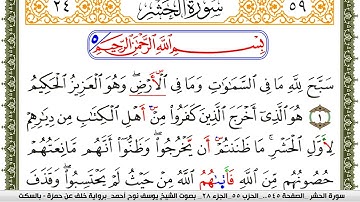 ٢٤ سُورَةُ الْحَشْرِ ٥٩
بِسْمِ اللَّهِ الرَّحْمَٰنِ الرَّحِيمِ ٥
سَبَّحَ لِلَّهِ مَا فِي السَّمَاوَاتِ وَمَا فِي الْأَرْضِ وَهُوَ الْعَزِيزُ الْحَكِيمُ
١ هُوَ الَّذِي أَخْرَجَ الَّذِينَ كَفَرُوا مِنْ أَهْلِ الْكِتَابِ مِن دِيَارِهِمْ
لِأَوَّلِ الْحَشْرِ مَا ظَنَنتُمْ أَن يَخْرُجُوا وَظَنُّوا أَنَّهُم مَّانِعَتُهُمْ
حُصُونُهُم مِّنَ اللَّهِ فَأَتَىٰهُمُ اللَّهُ مِنْ حَيْثُ لَمْ يَحْتَسِبُوا وَقَذَفَ
سورة الحشر . الصفحة ٥٤٥ . الحزب ٥٥ . الجزء ٢٨ . بصوت الشيخ يوسف نوح أحمد . برواية خلف عن حمزة - بالسكت